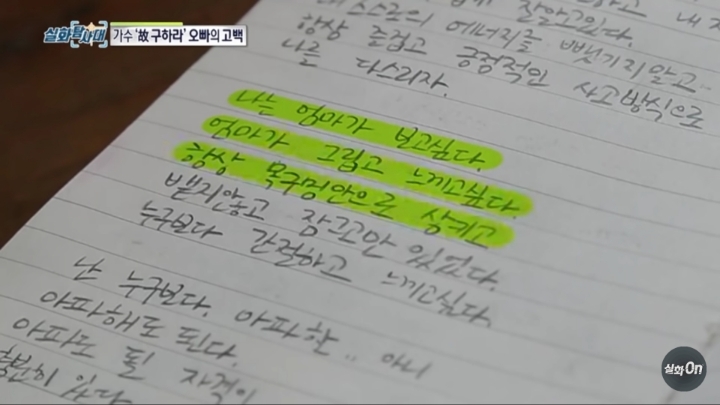 실화탐사대 가수 '故 구하라' 오빠의 고백
잘알고있다.
내 스스로의 에너지를 뺏기지말고..
항상 즐겁고 긍정적인 사고방식으로
나를 다스리자.
나는 엄마가 보고싶다.
엄마가 그립고 느끼고싶다.
항상 목구멍안으로 삼키고
뱉지않고 잠그고만 있었다.
누구보다 간절하고 느끼고싶다.
난 누구보다. 아파한.. 아니
아파해도 된다.
아파도 될 자격이
충분히 있다.
실화On